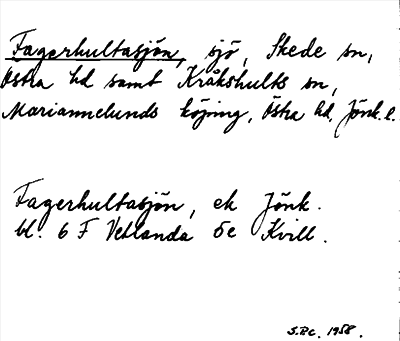 Fagerhultasjön, sjö, Skede sn,
Östra hd samt Kråkshults sn,
Mariannelunds köping, Östra hd, Jönk. l.
Fagerhultasjön, ek Jönk.
bl. 6 F Vetlanda 5e Kvill.
S.B.C. 1958.